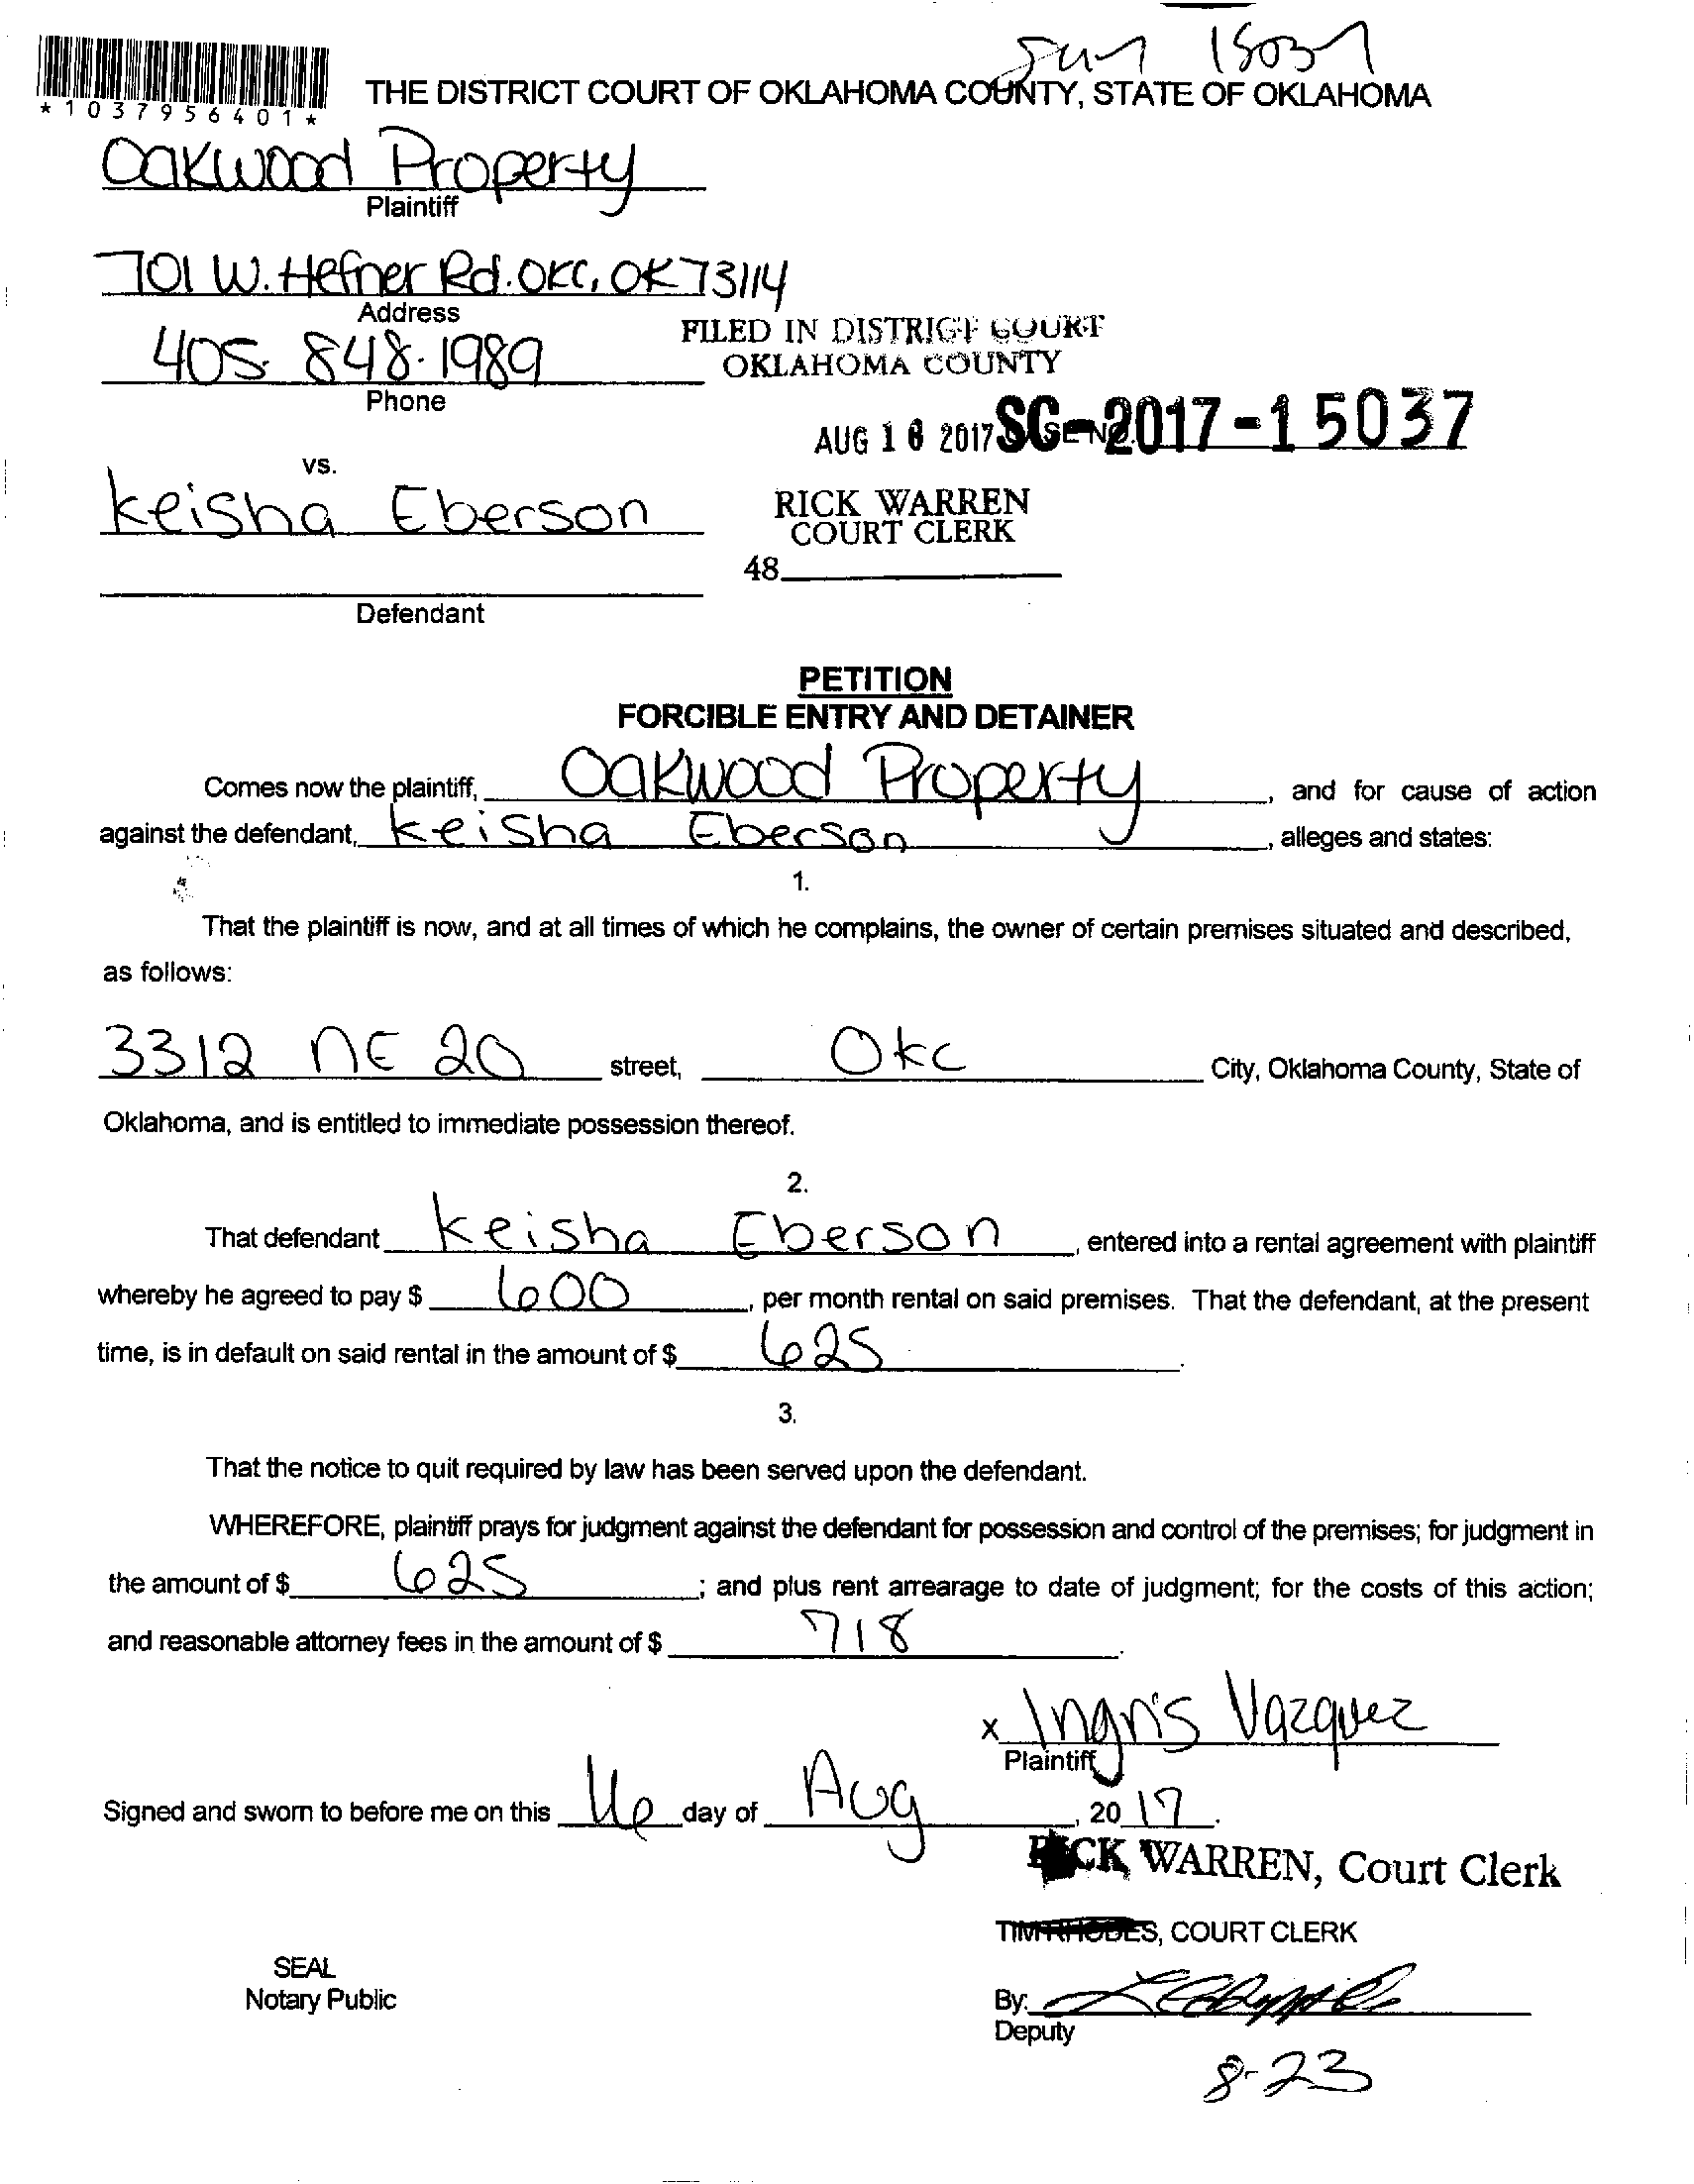 15037
THE DISTRICT COURT OF OKLAHOMA COUNTY, STATE OF OKLAHOMA
*1037956401*
Oakwood Property
Plaintiff
701 W. Hefner Rd. OKC, OK 73114
Address
405 848-1989
Phone
FILED IN DISTRICT COURT
OKLAHOMA COUNTY
AUG 16 2017 SC-2017-15037
vs.
Keisha Eberson
RICK WARREN
COURT CLERK
48
Defendant
PETITION
FORCIBLE ENTRY AND DETAINER
Comes now the plaintiff, Oakwood Property, and for cause of action
against the defendant, Keisha Eberson, alleges and states:
1.
That the plaintiff is now, and at all times of which he complains, the owner of certain premises situated and described,
as follows:
3312 NE 20 street, OKC City, Oklahoma County, State of
Oklahoma, and is entitled to immediate possession thereof.
2.
That defendant Keisha Eberson, entered into a rental agreement with plaintiff
whereby he agreed to pay $ 600, per month rental on said premises. That the defendant, at the present
time, is in default on said rental in the amount of $ 625.
3.
That the notice to quit required by law has been served upon the defendant.
WHEREFORE, plaintiff prays for judgment against the defendant for possession and control of the premises; for judgment in
the amount of $ 625; and plus rent arrearage to date of judgment; for the costs of this action;
and reasonable attorney fees in the amount of $ 718.
x Ingris Vazquez
Plaintiff
Signed and sworn to before me on this 16 day of Aug, 2017.
RICK WARREN, Court Clerk
TIM RHODES, COURT CLERK
SEAL
Notary Public
By:
Deputy
8-23